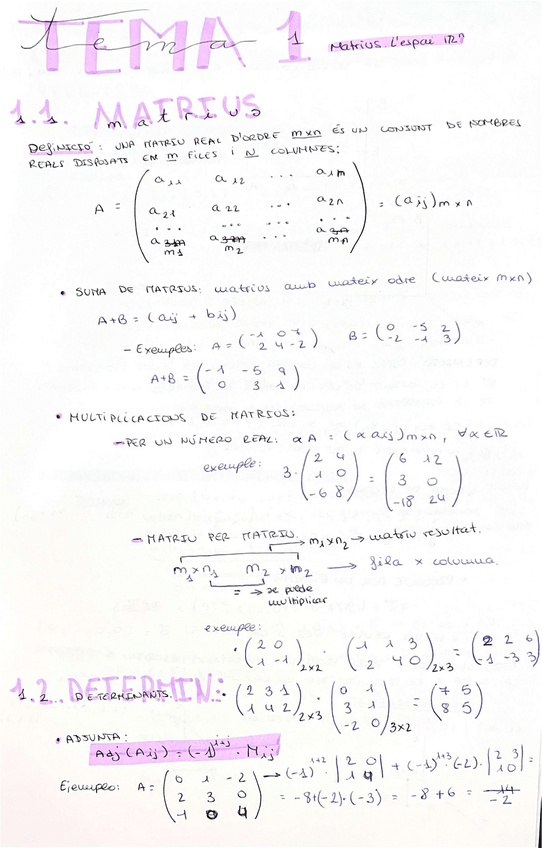 TEMA 1
tema
Matrius. L'espai ℝ?
1.1. MATRIUS
matrius
DEFINICIÓ: UNA MATRIU REAL D'ORDRE mxn ÉS UN CONJUNT DE NOMBRES
REALS DISPOSATS EM m FILES I N COLUMNES:
A = ( a11 a12 ... a1m
a21 a22 ... a2n
... ... ... ...
a m1 a m2 ... a mn ) = (aij) m x n
• SUMA DE MATRIUS: matrius amb mateix odre (mateix mxn)
A+B = (aij + bij)
- Exemples: A = ( -1 0 7 / 2 4 -2 ) B = ( 0 -5 2 / -2 -1 3 )
A+B = ( -1 -5 9 / 0 3 1 )
• MULTIPLICACIONS DE MATRIUS:
- PER UN NÚMERO REAL: αA = (αaij)mxn, ∀α∈ℝ
exemple: 3 · ( 2 4 / 1 0 / -6 8 ) = ( 6 12 / 3 0 / -18 24 )
- MATRIU PER MATRIU. → m1xn2 → matriu resultat.
m1xn1 m2 x n2 → fila x columna.
= → se puede
multiplicar
exemple:
• ( 2 0 / 1 -1 )2x2 · ( 1 1 3 / 2 4 0 )2x3 = ( 2 2 6 / -1 -3 3 )
1.2 DETERMIN:
DETERMINANTS. • ( 2 3 1 / 1 4 2 )2x3 · ( 0 1 / 3 1 / -2 0 )3x2 = ( 7 5 / 8 5 )
• ADJUNTA:
Adj (Aij) = (-1)^i+j · Mij
Ejemplo: A = ( 0 1 -2 / 2 3 0 / -1 0 4 ) → (-1)^1+2 · | 2 0 / 1 4 | + (-1)^1+3 · (-2) · | 2 3 / 1 0 | =
= -8+(-2)·(-3) = -8+6 = -14
-2